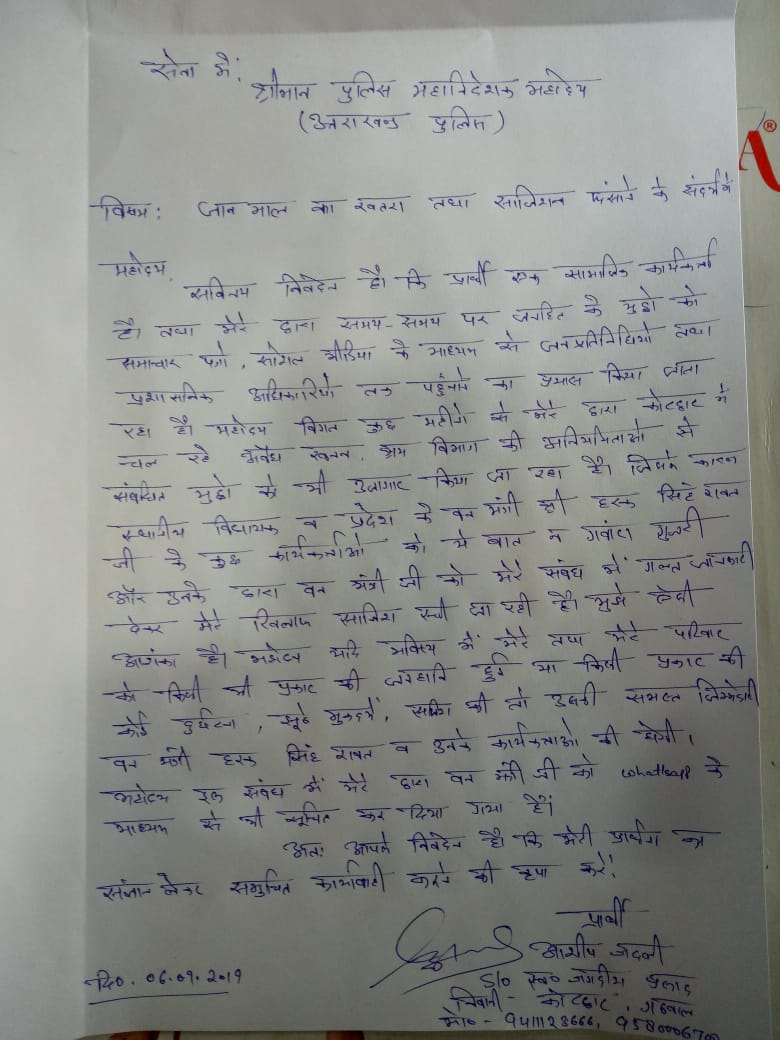 सेवा में,
श्रीमान पुलिस महानिदेशक महोदय
(उत्तराखण्ड पुलिस)
A®
विषय: जान माल का खतरा तथा साजिशन फंसाने के संदर्भ में
महोदय,
सविनय निवेदन है। कि प्रार्थी एक सामाजिक कार्यकर्ता
है। तथा मेरे द्वारा समय-समय पर जनहित के मुद्दो को
समाचार पत्रो, सोशल मीडिया के माध्यम से जनप्रतिनिधियो तथा
प्रशासनिक अधिकारियो तक पहुंचाने का प्रयास किया जाता
रहा है। महोदय विगत कुछ महीनो से मेरे द्वारा कोटद्वार में
चल रहे अवैध खनन, श्रम विभाग की अनियमिताओ से
संबंधित मुद्दो को भी उजागर किया जा रहा है। जिसके कारण
स्थानीय विधायक व प्रदेश के वन मंत्री श्री हरक सिंह रावत
जी के कुछ कार्यकर्ताओ को ये बात न गवांरा गुजरी
और उनके द्वारा वन मंत्री जी को मेरे संबंध में गलत जानकारी
देकर मेरे खिलाफ साजिश रची जा रही है। मुझे ऐसी
आशंका है। महोदय यदि भविष्य में मेरे तथा मेरे परिवार
को किसी भी प्रकार की जनहानि हुई या किसी प्रकार की
कोई दुर्घटना, झूठे मुकदमें, साजिश की तो उसकी समस्त जिम्मेदारी
वन मंत्री हरक सिंह रावत व उनके कार्यकताओ की होगी।
महोदय इस संबंध में मेरे द्वारा वन मंत्री जी को whatsapp के
माध्यम से भी सूचित कर दिया गया है।
अतः आपसे निवेदन है। कि मेरी प्रार्थना का
संज्ञान लेकर समुचित कार्यवाही करने की कृपा करें!
प्रार्थी
आशीष
S/o स्व० जगदीश प्रसाद
निवासी - कोटद्वार, गढवाल
मो० - 9411123666,
दि०. 06.09.2019